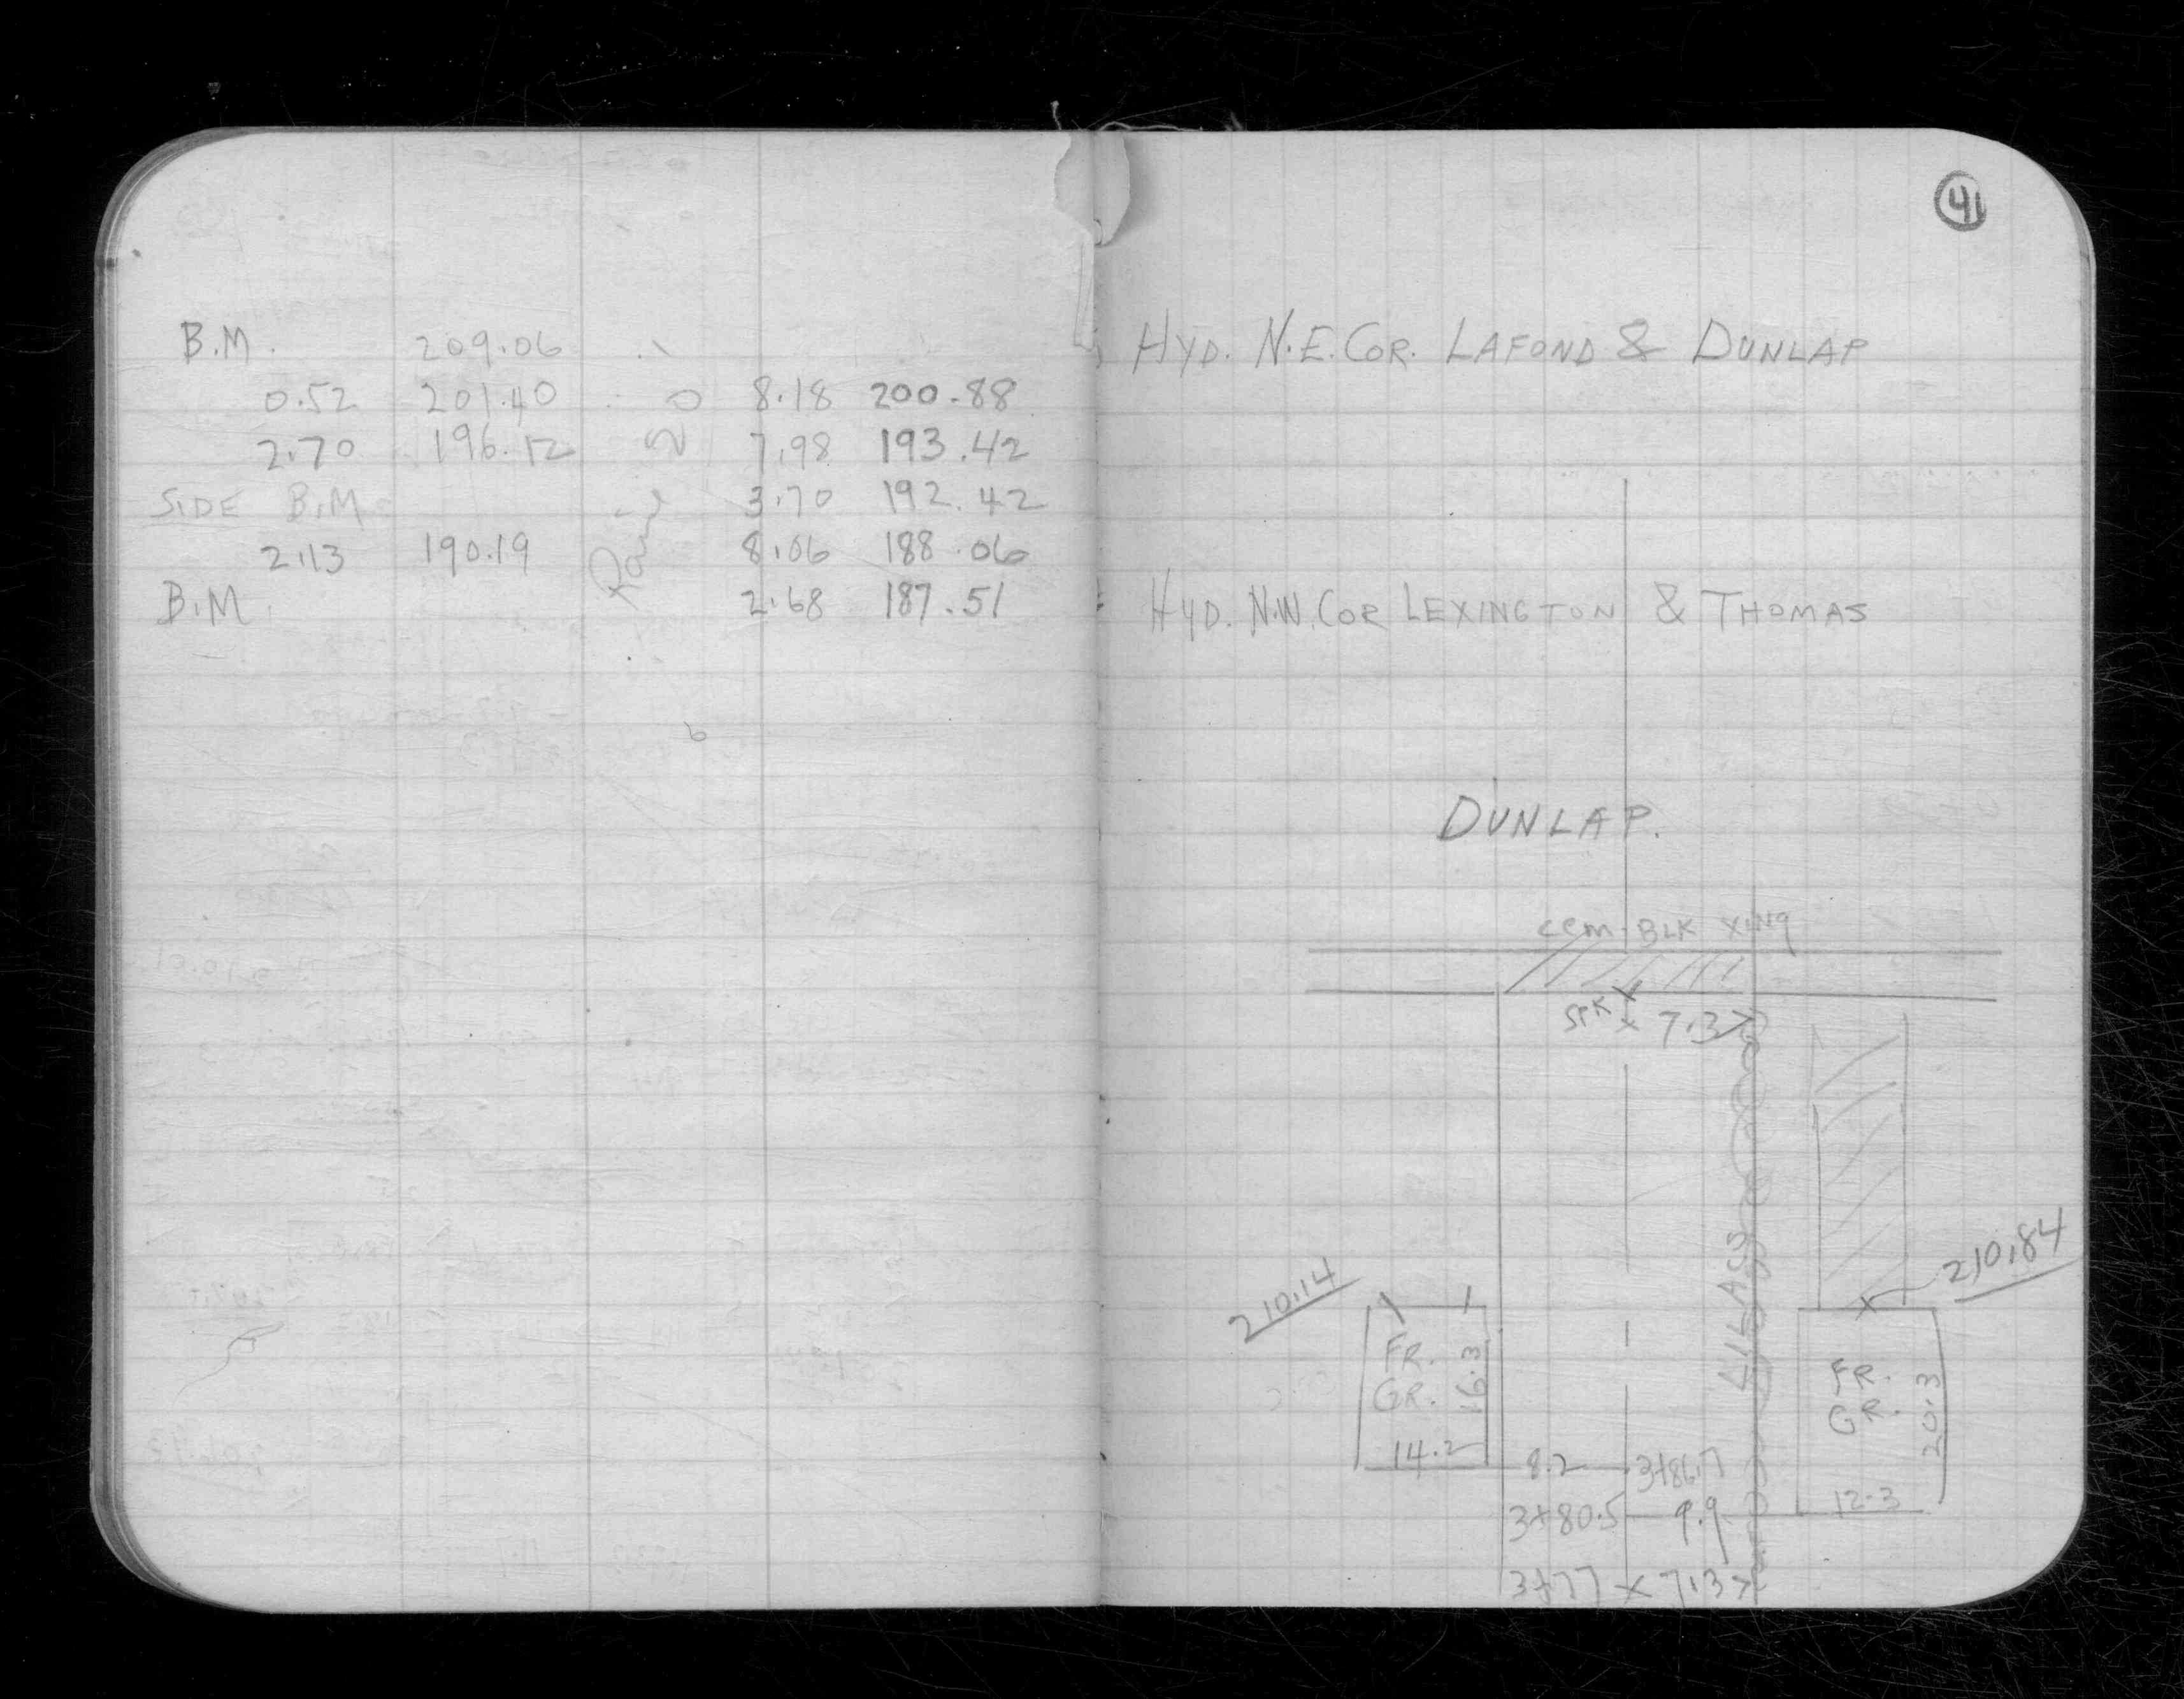 B.M. 209.06
0.52 201.40 8.18 200.88
2.70 196.12 7.98 193.42
SIDE B.M 3.70 192.42
2.13 190.19 8.06 188.06
B.M. 2.68 187.51
41
HYD. N.E. COR. LAFOND & DUNLAP
HYD. N.W. COR LEXINGTON & THOMAS
DUNLAP.
CEM. BLK XING
SPK x 7.3
LILACS
210.14
210.84
FR.
GR.
16.3
14.2
FR.
GR.
20.3
12.3
8.2 3+86.7
3+80.5 9.9
3+77 x 7.3